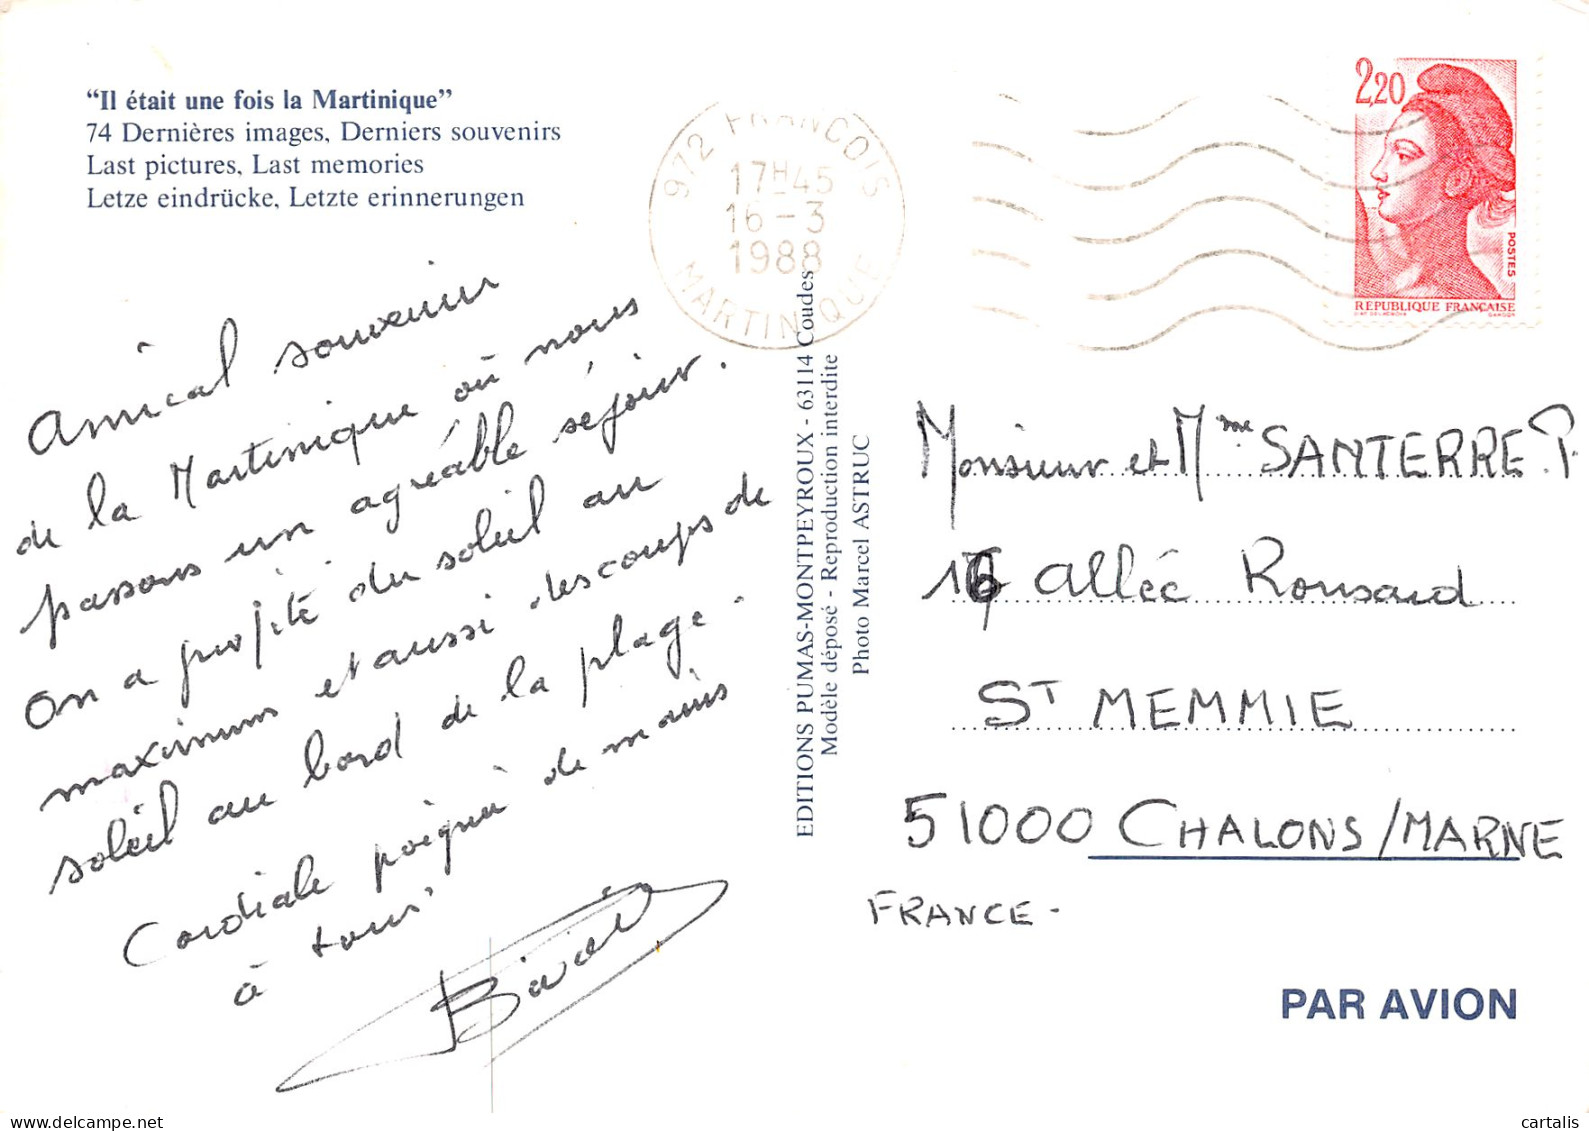 "Il était une fois la Martinique"
74 Dernières images, Derniers souvenirs
Last pictures, Last memories
Letze eindrücke, Letzte erinnerungen
972 FRANCOIS
17H45
16-3
1988
MARTINIQUE
2,20
POSTES
REPUBLIQUE FRANÇAISE
GANDON
Amical souvenir
de la Martinique où nous
passons un agréable séjour.
On a profité du soleil au
maximum et aussi des coups de
soleil au bord de la plage.
Cordiale poignée de mains
à tous
EDITIONS PUMAS-MONTPEYROUX - 63114 Coudes
Modèle déposé - Reproduction interdite
Photo Marcel ASTRUC
Monsieur et Mme SANTERRE P.
16 allée Ronsard
ST MEMMIE
51000 CHALONS/MARNE
FRANCE-
PAR AVION
cartalis.delcampe.net